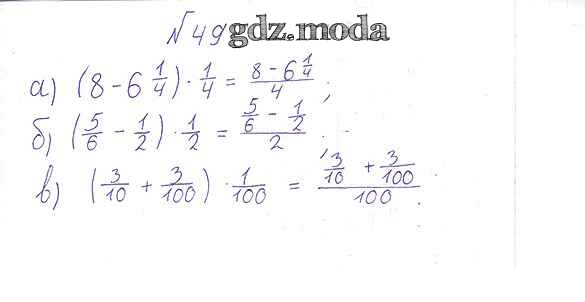 №49 gdz.moda
а) (8 - 6 1/4) · 1/4 = (8 - 6 1/4)/4 ;
б) (5/6 - 1/2) · 1/2 = (5/6 - 1/2)/2 .
в) (3/10 + 3/100) · 1/100 = (3/10 + 3/100)/100 .